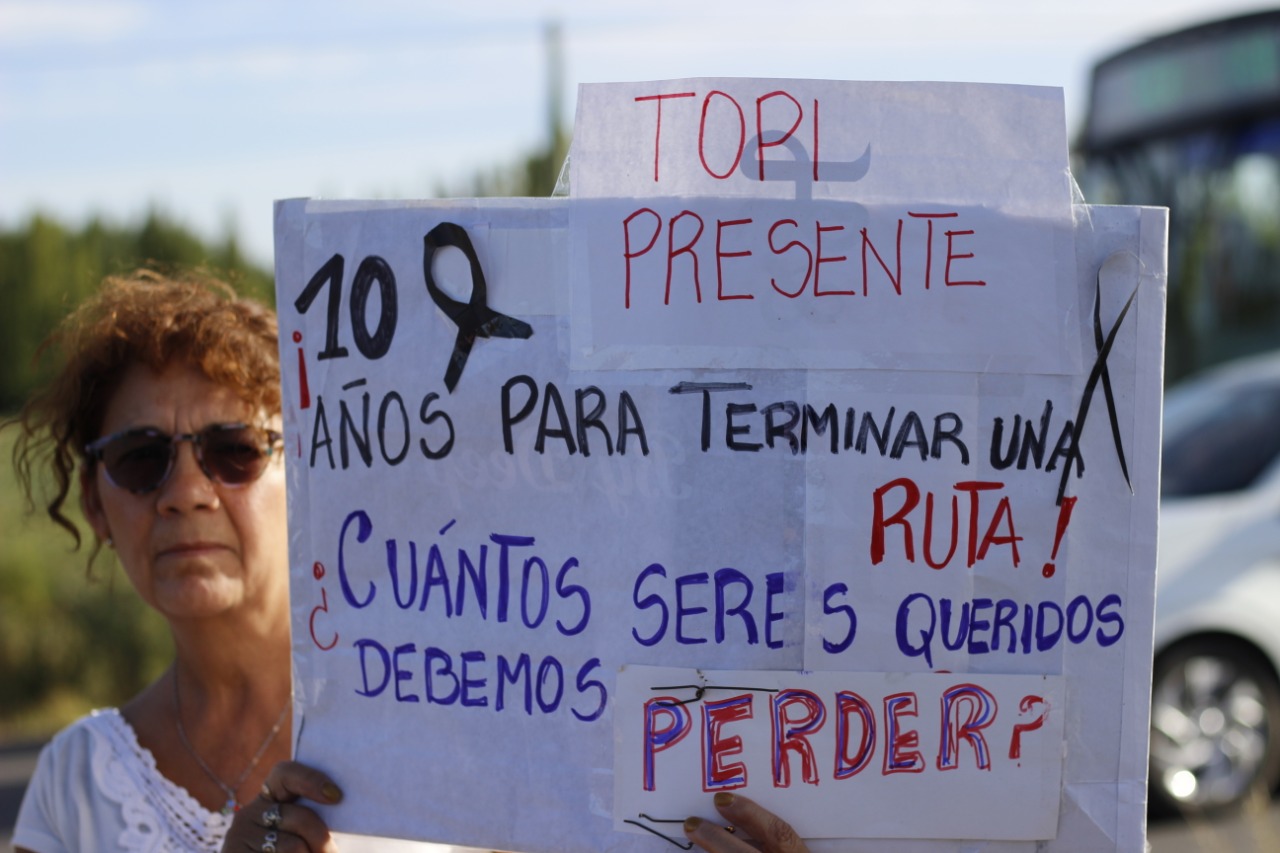 TOPI
PRESENTE
¡10
AÑOS PARA TERMINAR UNA
RUTA!
¿CUÁNTOS SERES QUERIDOS
DEBEMOS PERDER?